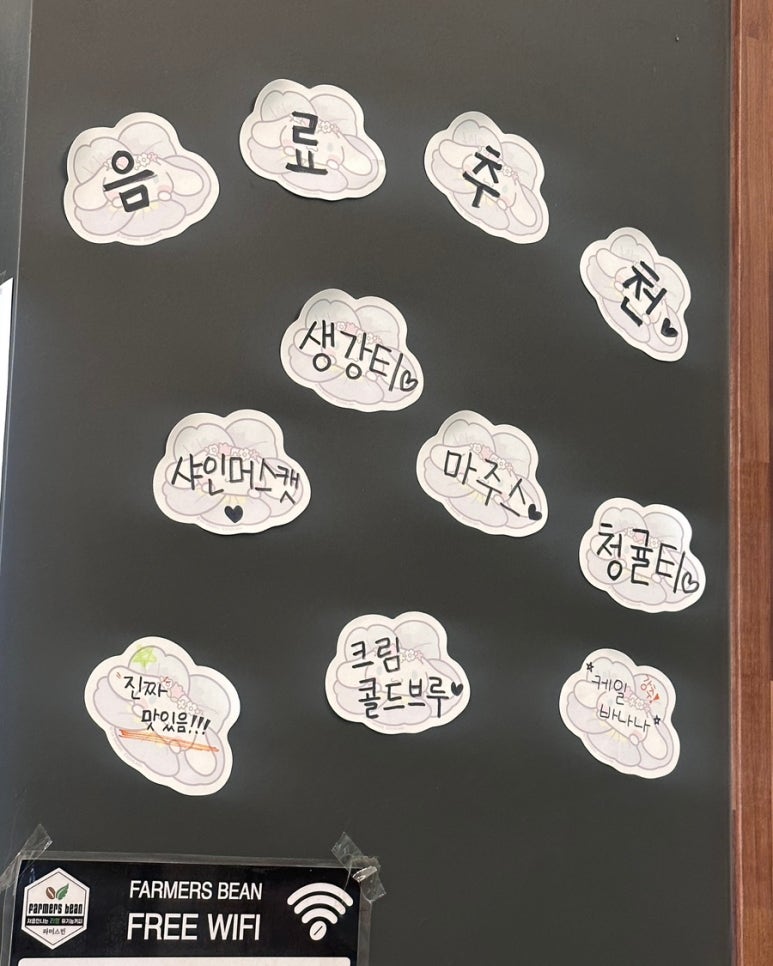 음 료 추 천♥
생강티♡
샤인머스캣
♥
마주스♥
청귤티♡
"진짜
맛있음!!!
크림
콜드브루♥
"케일 강추!
바나나"
FARMERS BEAN
FREE WIFI
FARMERS BEAN
파머스빈